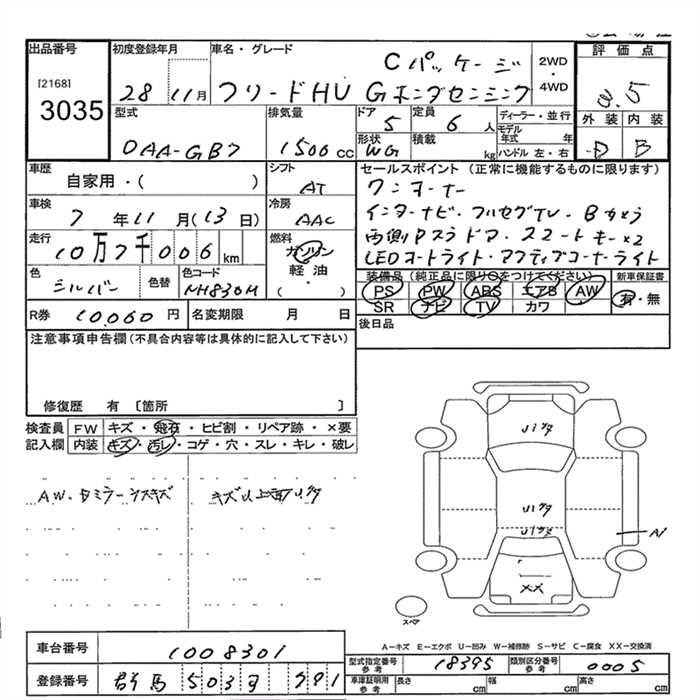 出品番号
[2168]
3035
初度登録年月
28 11月
車名・グレード
Cパッケージ
フリードHV Gホンダセンシング
2WD
・
4WD
評価点
外装 内装
D B
型式
DAA-GB7
排気量
1500cc
ドア
5
定員
6人
形状
WG
積載
kg
ディーラー・並行
モデル年式 年
ハンドル 左・右
車歴
自家用・( )
シフト
AT
車検
7年11月(13日)
冷房
AAC
走行
10万7千006km
燃料
ガソリン
軽油
( )
色
シルバー
色替
色コード
NH830M
R券
10,060円
名変期限 月 日
セールスポイント (正常に機能するものに限ります)
ワンオーナー
インターナビ・フルセグTV・Bカメラ
両側Pスラドア・スマートキー×2
LEDオートライト・アクティブコーナーライト
装備品(純正品に限り○をつけてください)
PS PW ABS エアB AW
SR ナビ TV カワ
新車保証書
有・無
後日品
注意事項申告欄(不具合内容等は具体的に記入して下さい)
修復歴 有 [箇所 ]
検査員
記入欄
FW キズ・飛石・ヒビ割・リペア跡・×要
内装 キズ・汚レ・コゲ・穴・スレ・キレ・破レ
スペア
A-キズ E-エクボ U-凹み W-補修跡 S-サビ C-腐食 XX-交換済
XX
車台番号
1008301
登録番号
群馬 503
型式指定番号
参考
18395
類別区分番号
参考
0005
車庫証明用
参考
長さ cm
幅 cm
高さ cm